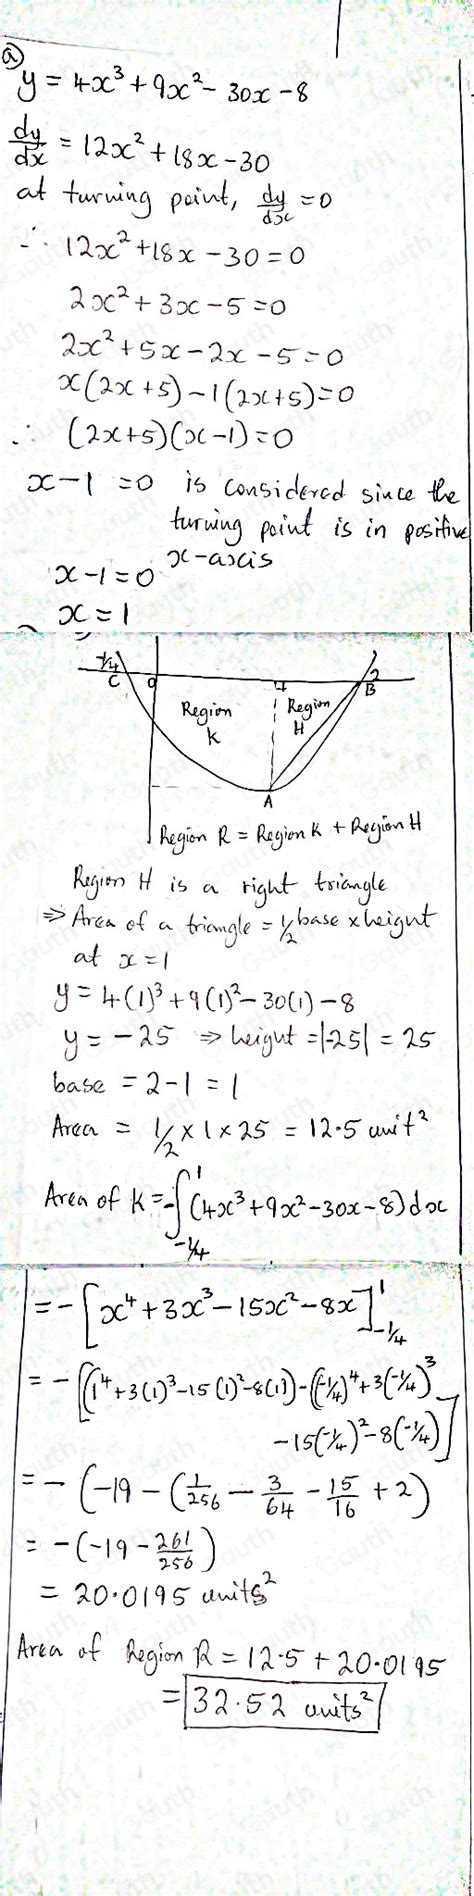 a
y = 4x³ + 9x² - 30x - 8
dy/dx = 12x² + 18x - 30
at turning point, dy/dx = 0
∴ 12x² + 18x - 30 = 0
2x² + 3x - 5 = 0
2x² + 5x - 2x - 5 = 0
x(2x + 5) - 1(2x + 5) = 0
∴ (2x + 5)(x - 1) = 0
x - 1 = 0 is considered since the
turning point is in positive
x-axis
x - 1 = 0
x = 1
-1/4 C 0 1 2 B
Region K
Region H
A
Region R = Region K + Region H
Region H is a right triangle
⇒ Area of a triangle = 1/2 base x height
at x = 1
y = 4(1)³ + 9(1)² - 30(1) - 8
y = -25 ⇒ height = |-25| = 25
base = 2 - 1 = 1
Area = 1/2 x 1 x 25 = 12.5 unit²
Area of K = -∫₋₁/₄¹ (4x³ + 9x² - 30x - 8) dx
= -[x⁴ + 3x³ - 15x² - 8x]₋₁/₄¹
= -[(1⁴ + 3(1)³ - 15(1)² - 8(1)) - ((-1/4)⁴ + 3(-1/4)³
- 15(-1/4)² - 8(-1/4)]
= -(-19 - (1/256 - 3/64 - 15/16 + 2)
= -(-19 - 261/256)
= 20.0195 units²
Area of Region R = 12.5 + 20.0195
= 32.52 units²